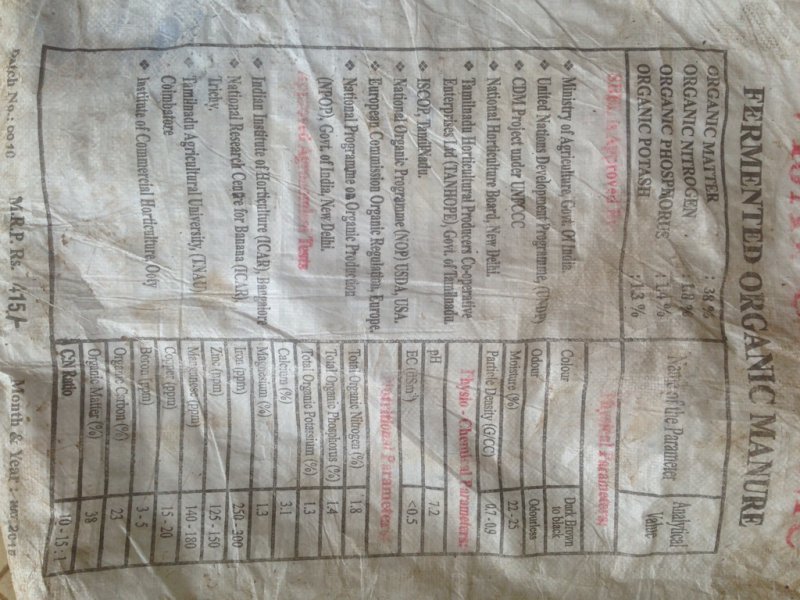 FERMENTED ORGANIC MANURE
ORGANIC MATTER : 38 %
ORGANIC NITROGEN : 1.8 %
ORGANIC PHOSPHORUS : 1.4 %
ORGANIC POTASH : 1.3 %
Approved By
❖ Ministry of Agriculture, Govt. Of India.
❖ United Nations Development Programme, (UNDP)
❖ CDM Project under UNFCCC
❖ National Horticulture Board, New Delhi.
❖ Tamilnadu Horticultural Producers Co-operative
Enterprises Ltd (TANHOPE), Govt. of Tamilnadu.
❖ ISCOP, TamilNadu.
❖ National Organic Programme (NOP) USDA, USA.
❖ European Commission Organic Regulation, Europe.
❖ National Programme on Organic Production
(NPOP), Govt. of India, New Delhi.
❖ Indian Institute of Horticulture (ICAR), Bangalore
❖ National Research Centre for Banana (ICAR),
Trichy.
❖ Tamilnadu Agricultural University, (TNAU)
Coimbatore
❖ Institute of Commercial Horticulture, Ooty
Name of the Parameter Analytical Value
Physical Parameters:
Colour Dark Brown to black
Odour Odourless
Moisture (%) 22 - 25
Particle Density (G/CC) 0.7 - 0.9
Physio - Chemical Parameters:
pH 7.2
EC <0.5
Nutritional Parameters:
Total Organic Nitrogen (%) 1.8
Total Organic Phosphorus (%) 1.4
Total Organic Potassium (%) 1.3
Calcium (%) 3.1
Magnesium (%) 1.3
Iron (ppm) 250 - 300
Zinc (ppm) 125 - 150
Manganese (ppm) 140 - 180
Copper (ppm) 15 - 20
Boron (ppm) 3 - 5
Organic Carbon (%) 23
Organic Matter (%) 38
CN Ratio 10 - 15 : 1
Batch No.: M.R.P. Rs. 415/- Month & Year :